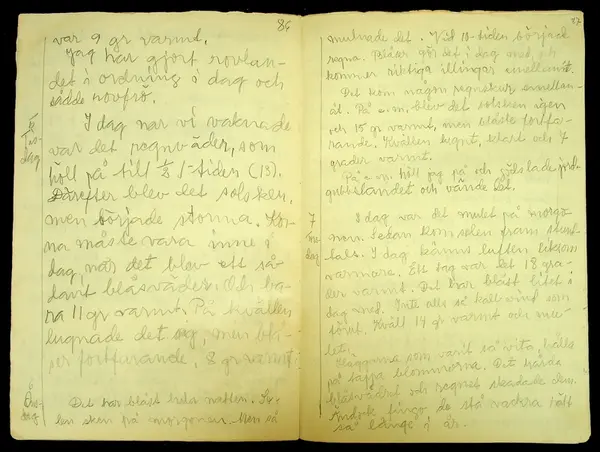 86
var 9 gr varmt.
Jag har gjort rovlan-
det i ordning i dag och
sådde rovfrö.
Tis-
dag
I dag när vi vaknade
var det regnväder, som
höll på till 1/2 1-tiden (13).
Därefter blev det solsken,
men började storma. Kor-
na måste vara inne i
dag, när det blev ett så-
dant blåsväder. Och ba-
ra 11 gr varmt. På kvällen
lugnade det sig, men blå-
ser fortfarande, 8 gr varmt.
Ons-
dag
Det har blåst hela natten. So-
len sken på morgonen. Men så
87
mulnade det. Vid 10-tiden började
regna. Blåser gör det i dag med, och
kommer riktiga illingar emellanåt.
Det kom någon regnskur emellan-
åt. På e.m. blev det solsken igen
och 15 gr varmt, men blåste fortfa-
rande. Kvällen lugnt, klart och 7
grader varmt.
På e.m. höll jag på och gödslade jord-
gubbslandet och vände det.
7
I dag var det mulet på morgo-
nen. Sedan kom solen fram
I dag känns luften liksom
varmare. Ett tag var det 18 gra-
der varmt. Det har blåst litet i
dag med. Inte alls så kall vind som
förut. Kväll 14 gr varmt och mu-
let.
Häggarna som varit så vita, hålls
på tappa blommorna. Det hårda
blåsvädret och regnet skadade dem.
Ändock fingo de stå vackra rätt
så länge i år.